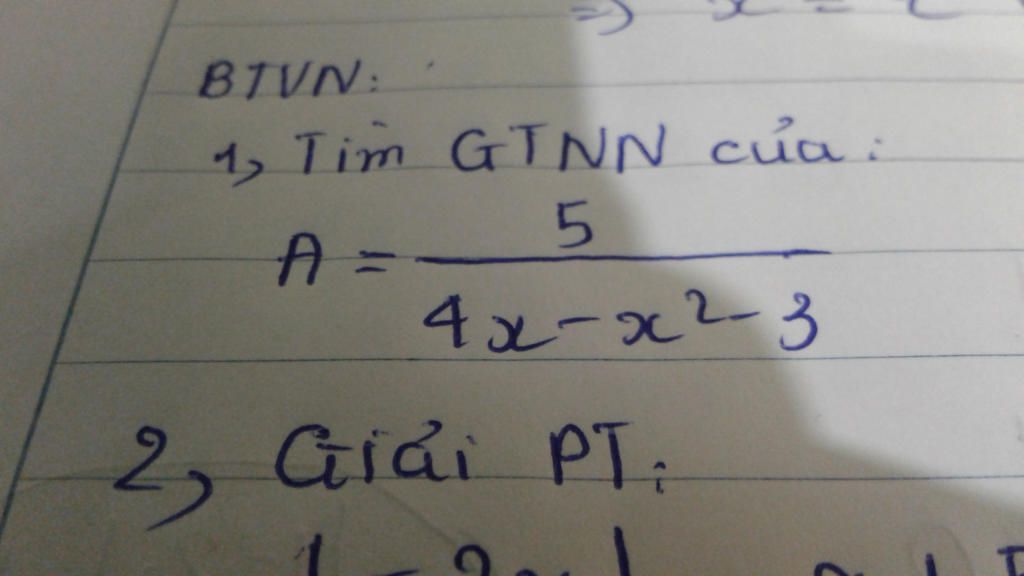 BTVN:
1, Tìm GTNN của:
A = 5 / (4x - x² - 3)
2, Giải PT: